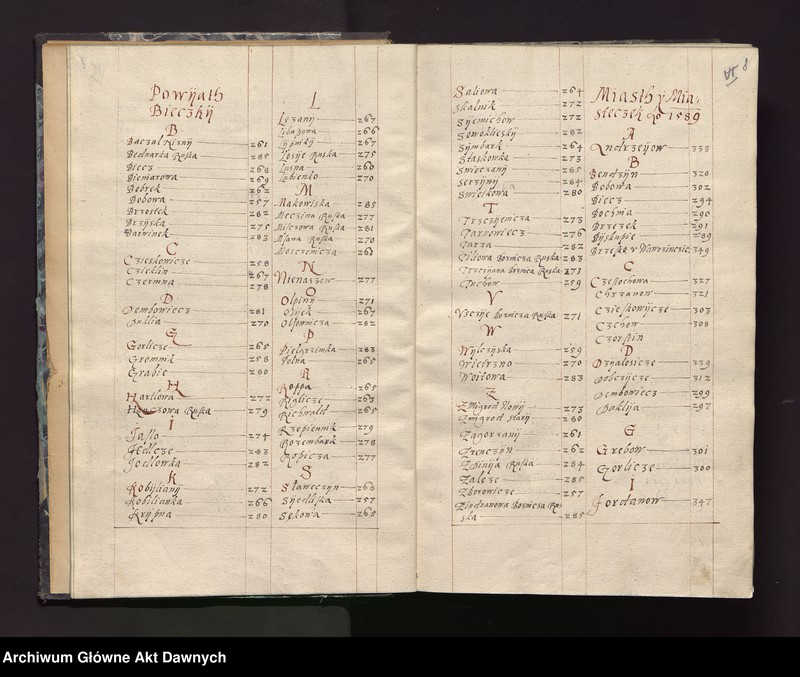 Powyath
Bieczky
B
Baczal Nizny 261
Bednarka Ruska 285
Biecz 268
Biemarowa 269
Bobrek 262
Bobowa 257
Brzostek 282
Brzyska 276
Barwinek 283
C
Czieskowicze 258
Czieklin 267
Czermna 278
D
Dembowiecz 281
Duklia 270
G
Gorlicze 265
Gromnik 258
Grabie 280
H
Harklowa 272
Hanczowa Ruska 279
I
Jaslo 274
Jedlcze 283
Jodlowka 282
K
Kobylianka 266
Krypna 280
L
Luzany 267
266
Lypniky 267
Losye Ruska 275
Lusna 260
Lubienko 270
M
Makowiska 285
Mecina Ruska 277
Milczowa Ruska 281
Msana Ruska 270
Mosczenicza 261
N
Nienaszow 277
O
Olpiny 271
Osiek 267
Olssowicza 282
P
Pielgrzimka 283
Polna 265
R
Roppa 265
Riglicze 263
Richwald 265
Rzepiennik 279
Rozembark 278
Ropicza 277
S
Slaweczyn 268
Syedliska 257
Sekowa 265
Saliowa 264
Skalnik 272
Syemichow 272
Sowoklesky 282
Symbark 264
Staskowka 273
Swieczany 285
Serzyny 284
Swieikowa 280
T
Trzczienicza 273
Tarnowiecz 276
Turza 282
Tiliowa Boznicza Ruska 283
Trzczyana Boznica Ruska 271
Tuchow 259
V
Vscige Boznicza Ruska 271
W
Wylczyska 259
Wietrzno 270
Woitowa 283
Z
Zmigrod Nowy 273
Zmigrod Stary 280
Zagorzany 261
Zrenczyn 262
Zbinia Ruska 284
Zaleze 285
Zborowicze 257
Zindranowa Boznicza Ru
ska 285
VI 8
Miasth y Mia,
steczek Ao 1589
A
Andrzeyow 333
B
Bendzyn 320
Bobowa 302
Biecz 294
Bochnia 290
Brzezek 291
Byskupie 289
349
C
Czestochowa 327
Chrzanow 321
Czieskowycze 303
Czchow 308
Czorstin
D
Dzyaloszicze 339
Dobczycze 312
Dembowiecz 299
Duklya 297
G
Grebow 301
Gorlicze 300
I
Jordanow 347
Archiwum Główne Akt Dawnych